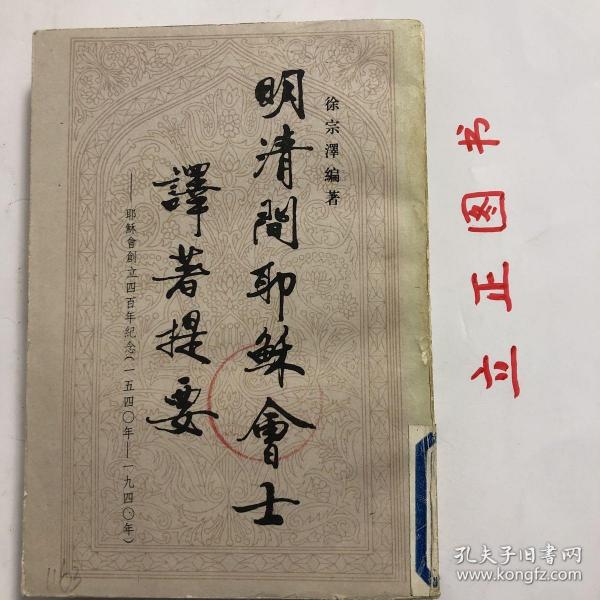 徐宗澤編著
明清間耶穌會士
譯著提要
——耶穌會創立四百年紀念(一五四〇年——一九四〇年)
立正图书
1163
孔夫子旧书网
www.kongfz.com